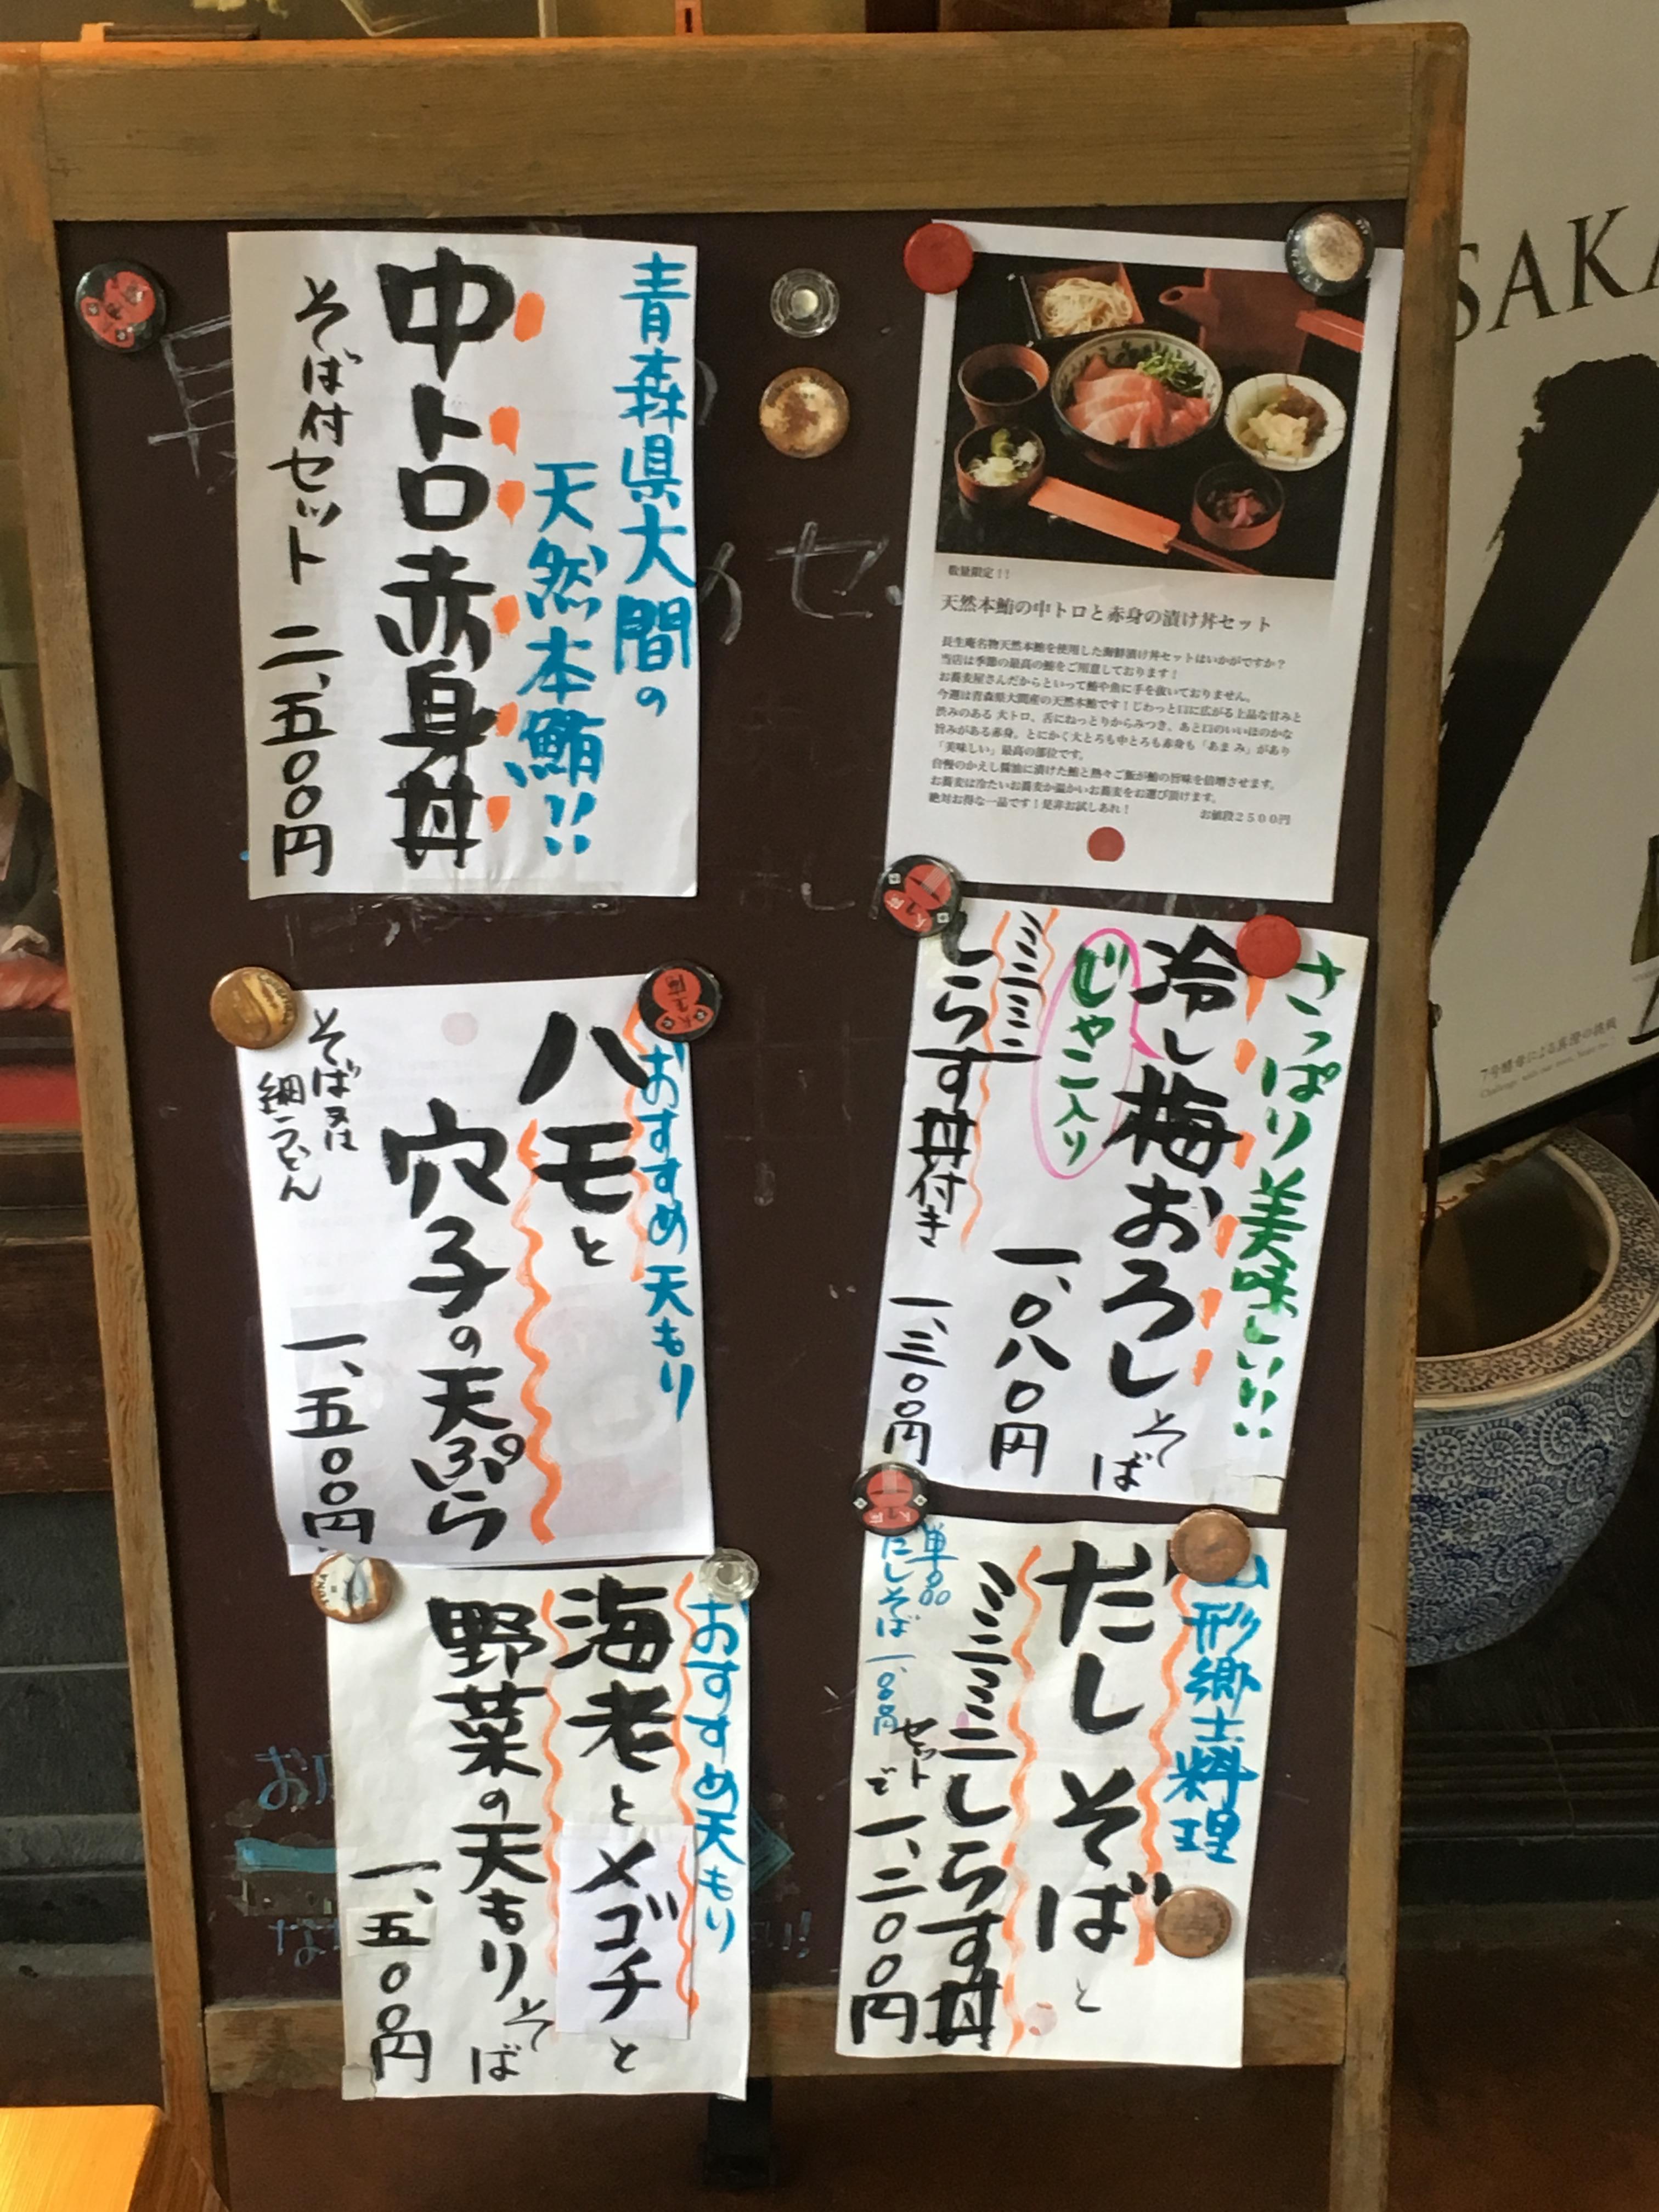 青森県大間の
天然本鮪!!
中トロ赤身丼
そば付セット 二、五〇〇円
数量限定!!
天然本鮪の中トロと赤身の漬け丼セット
長生庵名物天然本鮪を使用した海鮮漬け丼セットはいかがですか?
当店は季節の最高の鮪をご用意しております!
お蕎麦屋さんだからといって鮪や魚に手を抜いておりません。
今週は青森県大間産の天然本鮪です!じわっと口に広がる上品な甘みと
渋みのある 大トロ、舌にねっとりからみつき、あと口のいいほのかな
旨みがある赤身。とにかく大とろも中とろも赤身も「あまみ」があり
「美味しい」最高の部位です。
自慢のかえし醤油に漬けた鮪と熱々ご飯が鮪の旨味を倍増させます。
お蕎麦は冷たいお蕎麦か温かいお蕎麦をお選び頂けます。
絶対お得な一品です!是非お試しあれ!
お値段2500円
さっぱり美味しい!!
冷し梅おろしそば
じゃこ入り
一、〇八〇円
ミニミニ
しらす丼付き 一、三〇〇円
おすすめ天もり
ハモと
穴子の天ぷら
そば又は
細うどん
一、五〇〇円
山形郷土料理
だしそばと
ミニミニしらす丼
セットで 一、二〇〇円
単品
だしそば 一、〇〇〇円
おすすめ天もり
海老とメゴチと
野菜の天もりそば
一、五〇〇円
SAKA
7号酵母による真澄の挑戦